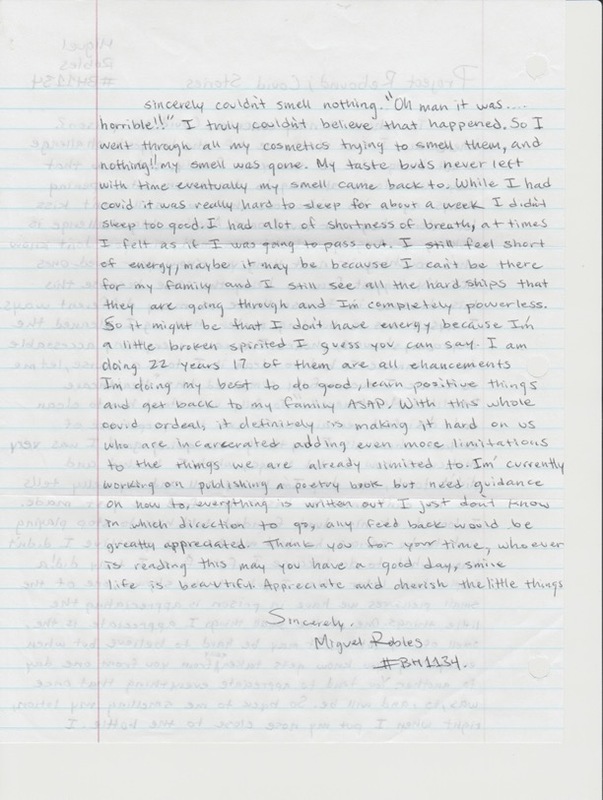 sincerely couldn't smell nothing. "Oh man it was....
horrible!!" I truly couldn't believe that happened. So I
went through all my cosmetics trying to smell them, and
nothing!! my smell was gone. My taste buds never left
with time eventually my smell came back to. While I had
covid it was really hard to sleep for about a week I didn't
sleep too good. I had alot of shortness of breath, at times
I felt as if I was going to pass out. I still feel short
of energy, maybe it may be because I can't be there
for my family and I still see all the hard ships that
they are going through and I'm completely powerless.
So it might be that I don't have energy because I'm
a little broken spirited I guess you can say. I am
doing 22 years 17 of them are all enhancements
I'm doing my best to do good, learn positive things
and get back to my family ASAP. With this whole
covid ordeal, it definitely is making it hard on us
who are incarcerated adding even more limitations
to the things we are already limited to. I'm currently
working on publishing a poetry book but need guidance
on how to, everything is written out I just don't know
in which direction to go, any feed back would be
greatly appreciated. Thank you for your time, whoever
is reading this may you have a good day, smile
life is beautiful. Appreciate and cherish the little things
Sincerely.
Miguel Robles
#BM1134.